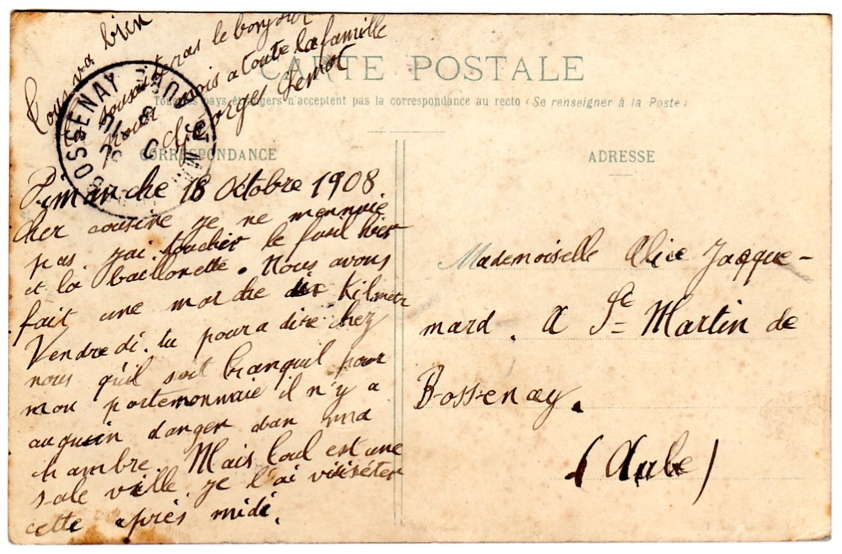 CARTE POSTALE
Tous les pays étrangers n'acceptent pas la correspondance au recto (Se renseigner à la Poste)
CORRESPONDANCE
Dimanche 18 Octobre 1908
cher cousine je ne mennuie
pas jai toucher le fusil hier
et la baillonette. Nous avons
fait une marche dix Kilmetr
Vendredi. tu poura dire chez
nous qu'il soit tranquil pour
mon portemonnaie il n'y a
auquin danger dan ma
chambre. Mais toul est une
sale ville je l'ai visiséter
cette après midi.
Tous va bien
pas le bonjour
moi a toute la famille
Georges
BOSSENAY
ADRESSE
Mademoiselle Alice Jacque-
mard. A St Martin de
Bossenay.
(Aube)